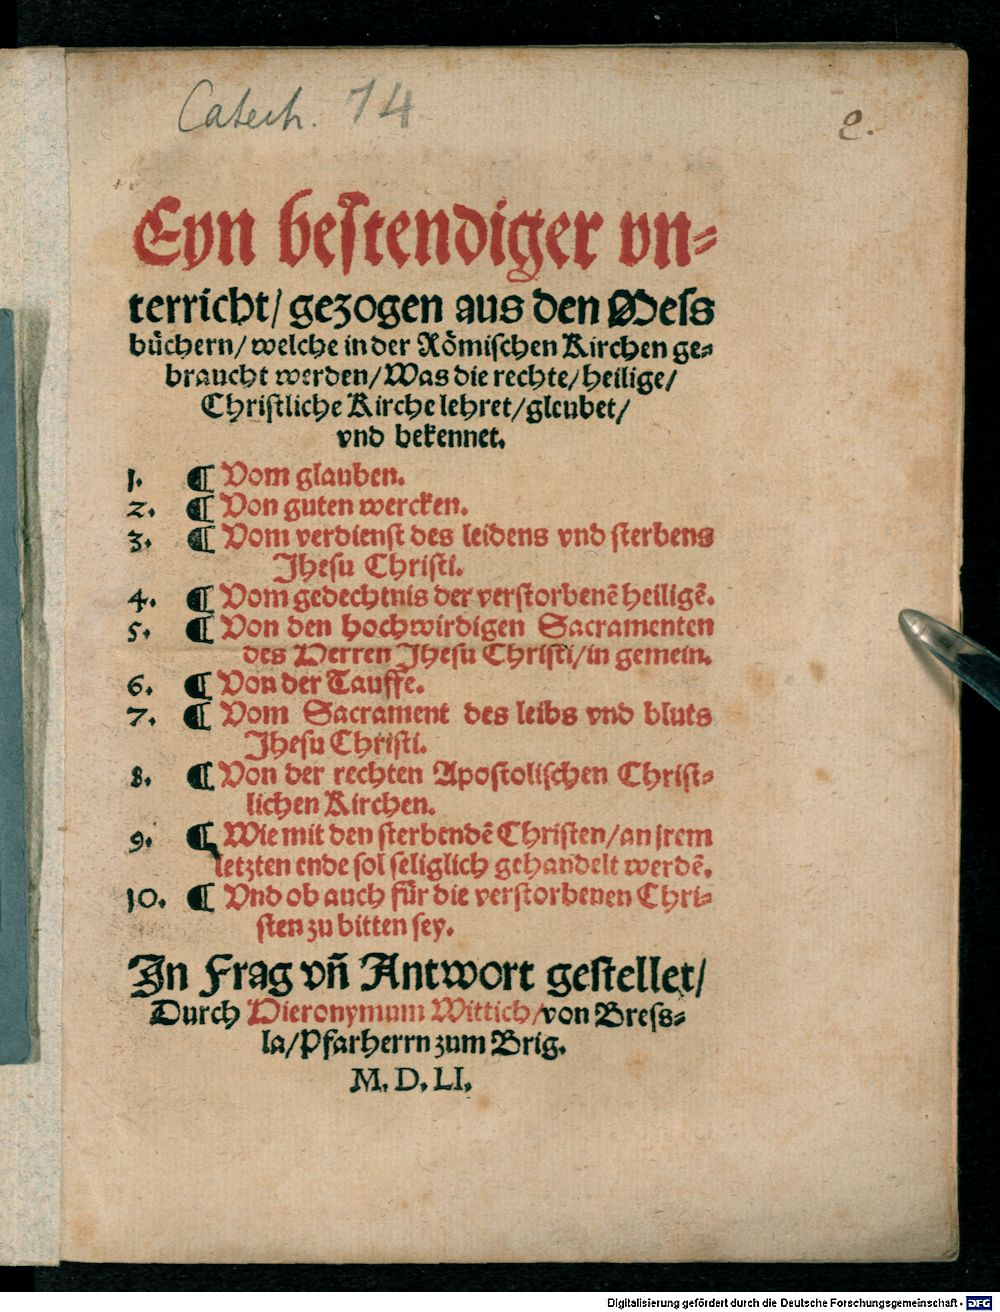 Catech. 74
2.
Eyn bestendiger vn⸗
terricht/ gezogen aus den Mess
büchern/ welche in der Römischen Kirchen ge⸗
braucht werden/ Was die rechte/ heilige/
Christliche Kirche lehret/ gleubet/
vnd bekennet.
1. ¶ Vom glauben.
2. ¶ Von guten wercken.
3. ¶ Vom verdienst des leidens vnd sterbens
Jhesu Christi.
4. ¶ Vom gedechtnis der verstorbenē heiligē.
5. ¶ Von den hochwirdigen Sacramenten
des Herren Jhesu Christi/ in gemein.
6. ¶ Von der Tauffe.
7. ¶ Vom Sacrament des leibs vnd bluts
Jhesu Christi.
8. ¶ Von der rechten Apostolischen Christ⸗
lichen Kirchen.
9. ¶ Wie mit den sterbendē Christen/ an jrem
letzten ende sol seliglich gehandelt werdē.
10. ¶ Vnd ob auch für die verstorbenen Chri⸗
sten zu bitten sey.
In Frag vñ Antwort gestellet/
Durch Hieronymum Wittich/ von Bress⸗
la/ Pfarherrn zum Brig.
M. D. LI.
Digitalisierung gefördert durch die Deutsche Forschungsgemeinschaft - DFG